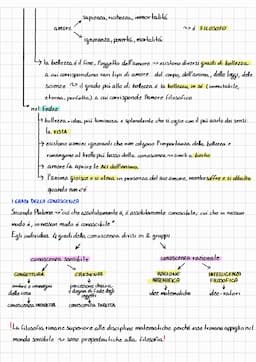 sapienza, ricchezza, immortalità
amore → è FILOSOFO
ignoranza, povertà, mortalità
↳ la bellezza è il fine, l'oggetto dell'amore → esistono diversi gradi di bellezza
a cui corrispondono vari tipi di amore: del corpo, dell'anima, delle leggi, delle
scienze → il grado più alto di bellezza è la bellezza in sé (immutabile,
eterna, perfetta) a cui corrisponde l'amore filosofico
nel Fedro
↳ bellezza = idea più luminosa e splendente che si coglie con il più acuto dei sensi:
la VISTA
→ esistono uomini ignoranti che non colgono l'importanza della bellezza e
rimangono al livello più basso della conoscenza
→ amore fa aprire le ALI dell'anima
→ l'anima gioisce e si eleva in presenza del suo amore, mentre soffre e si abbatte
quando non c'è
I GRADI DELLA CONOSCENZA
Secondo Platone → "ciò che assolutamente è, è assolutamente conoscibile; ciò che in nessun
modo è, in nessun modo è conoscibile"
Egli individua 4 gradi della conoscenza divisi in 2 gruppi
conoscenza sensibile conoscenza razionale
CONGETTURA CREDENZA RAGIONE MATEMATICA INTELLIGENZA FILOSOFICA
ombre e immagini
della cosa
conoscenza INDIRETTA conoscenza DIRETTA
idee matematiche idee-valori
! La filosofia rimane superiore alle discipline matematiche perché esse trovano appiglio nel
mondo sensibile → sono propedeutiche alla filosofia!